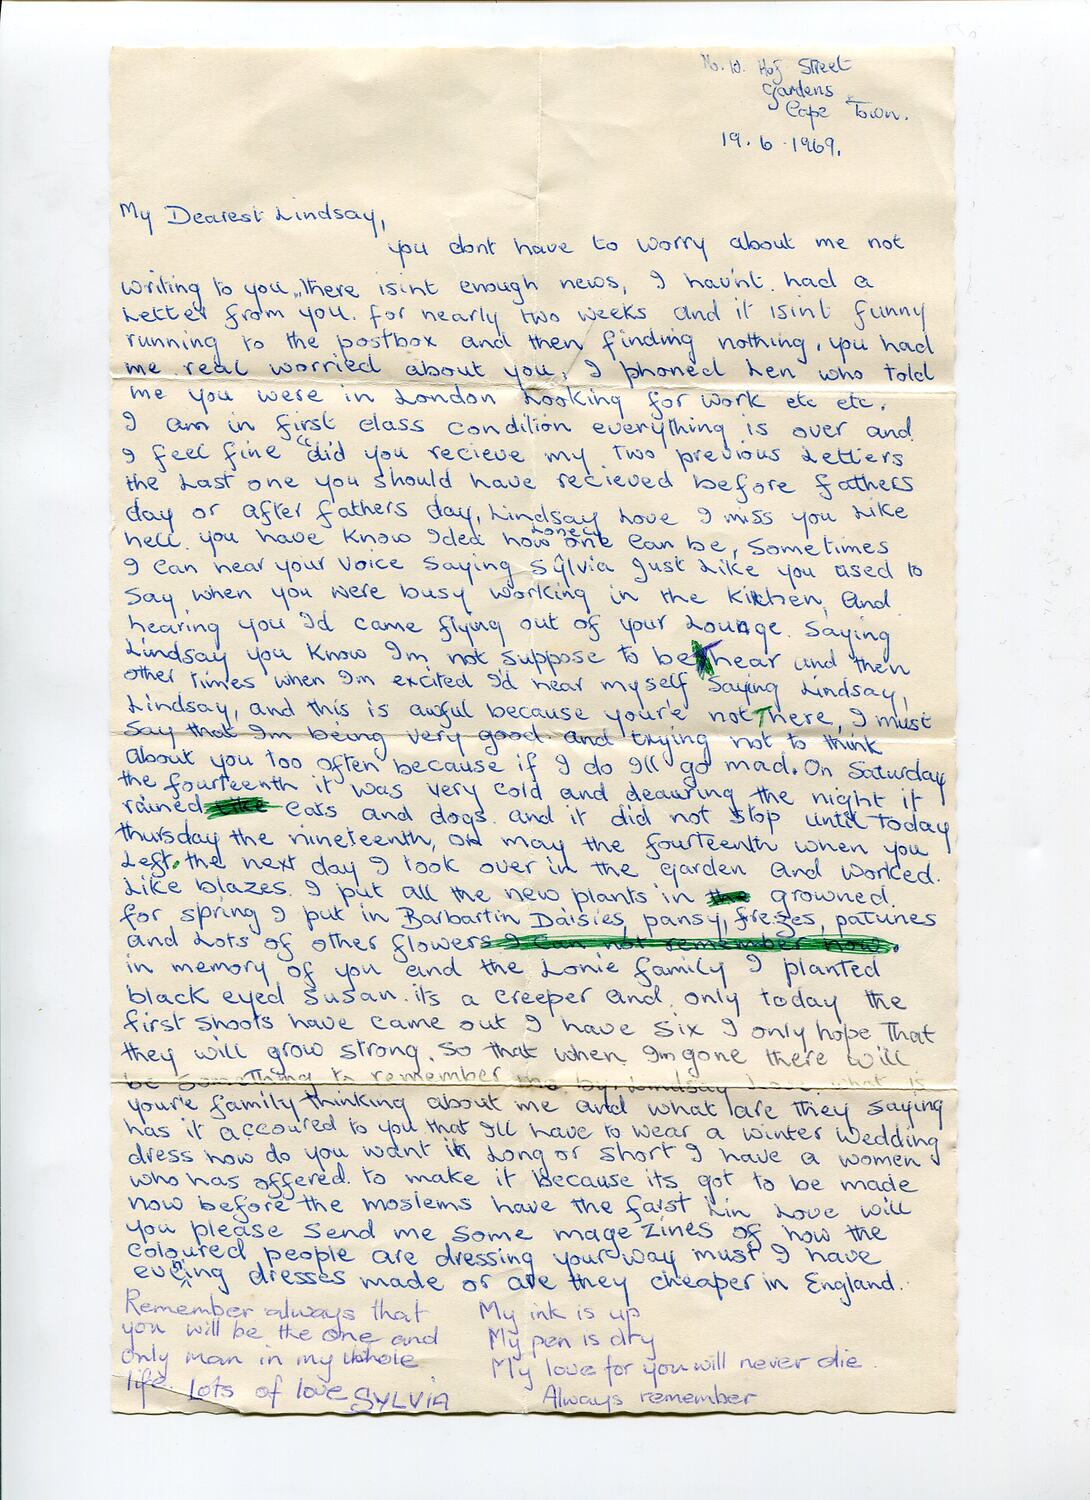 No. 10. Hof Street
Gardens
Cape Town.
19.6.1969.
My Dearest Lindsay,
you dont have to worry about me not
writing to you, there isint enough news, I hav'nt had a
Letter from you. for nearly two weeks and it isint funny
running to the postbox and then finding nothing, you had
me real worried about you, I phoned Len who told
me you were in London Looking for work etc etc.
I am in first class condition everything is over and
I feel fine "did you recieve my two previous Letters
the Last one you should have recieved before fathers
day or after fathers day, Lindsay Love I miss you Like
hell. you have know Idea how Lonely one can be, sometimes
I can hear your voice saying Sylvia Just Like you used to
say when you were busy working in the kitchen, and
hearing you I'd came flying out of your Lounge. saying
Lindsay you know I'm not suppose to be hear and then
other times when I'm excited I'd hear myself saying Lindsay,
Lindsay, and this is awful because your'e not There, I must
say that I'm being very good and trying not to think
about you too often because if I do I'll go mad. On Saturday
the fourteenth it was very cold and deauring the night it
rained like cats and dogs and it did not stop until today
thursday the nineteenth, on may the fourteenth when you
Left. the next day I took over in the garden and worked.
Like blazes. I put all the new plants in the growned.
for spring I put in Barbartin Daisies, pansy, frezes, patunes
and Lots of other flowers I can not remember now.
in memory of you and the Lonie family I planted
black eyed susan. its a creeper and only today the
first shoots have came out I have six I only hope that
they will grow strong. so that when I'm gone there will
be something to remember me by. Lindsay Love what is
your'e family thinking about me and what are they saying
has it accoured to you that I'll have to wear a winter wedding
dress how do you want it Long or short I have a women
who has offered. to make it because its got to be made
now before the moslems have the farst Lin Love will
you please send me some mage zines of how the
coloured people are dressing your way must I have
evening dresses made or are they cheaper in England.
Remember always that
you will be the one and
only man in my whole
life. Lots of love SYLVIA
My ink is up
My pen is dry
My love for you will never die.
Always remember